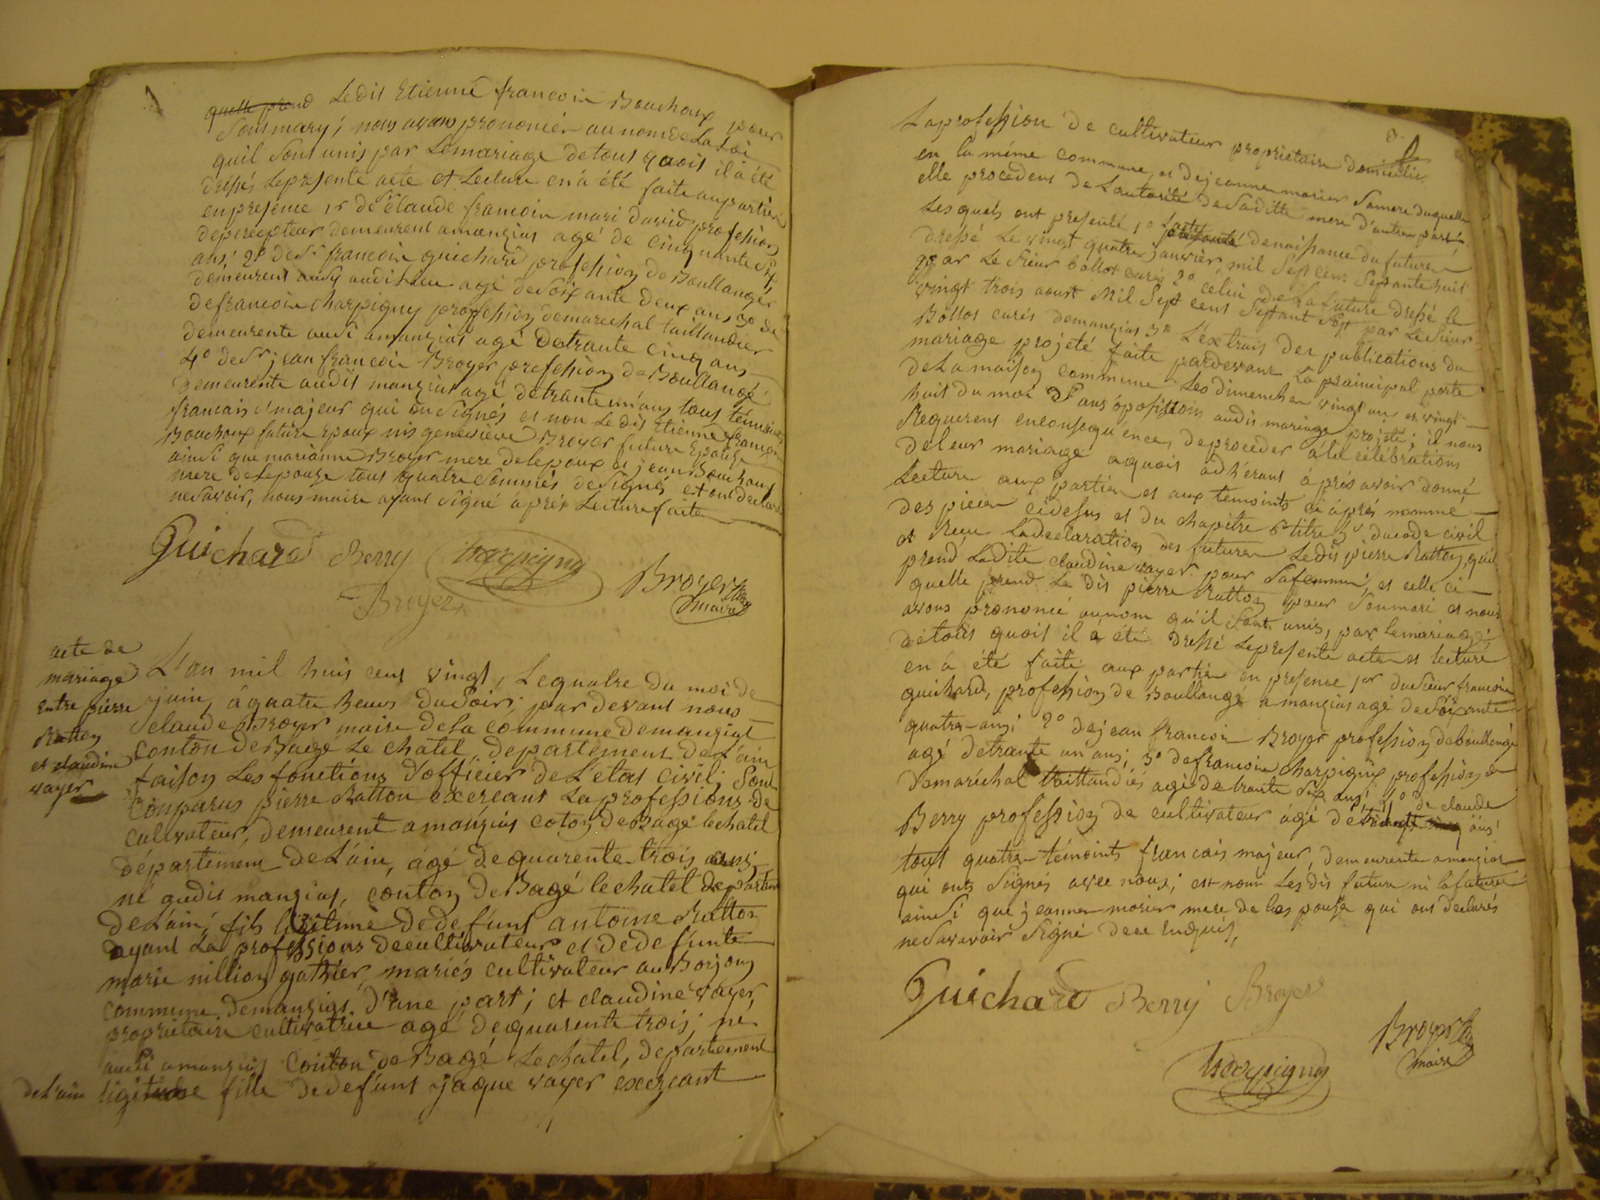 quelle prend Ledit Etienne francoin Bouchoux pour
Son mary ; nous avons prononcér au nom de La Loi
quil Sont unis par Le mariage de tout quoit il à été
dressé Le présente acte et Lecture en à été faite au partien
en présence 1r de Sr Claude francoin mari david profession
de percepteur demeurent a manziat agé de cinquante six
ans ; 2° de Sr francoin guichard profession de Boullanger
demeurent audit Lieu agé de Soixante deux ans 3° de
de francoin charpigny profession de marechal taillandier
demeurente ausi a manziat agé detrante cinq ans
4° de Sr jean francoin Broyer profession de Boullangé
demeurente audit manziat agé detrante un ans tous témoints
francais majeur qui on Signés et non Le dis Etienne francoin
Bouchoux future Epoux nis genevieve Broyer future Epouse
ainsi que marianne Broyer mere de lepoux et jean Bouchoux
mere de Lepouse tous quatre Sommés de Signés et ont declaré
ne Savoir, nous maire ayant Signé après Lecture faite
Guichard Berry Charpigny
Broyer Broyer
maire
acte de
mariage
Entre pierre
Ratton
et claudine
vayer
L'an mil huis cent vingt, Le quatre du moi de
juin, à quatre heures du Soir ; par devant nous
Claude Broyer maire de la commune de manziat
Conton de Bagé Le chatel, departement de L'ain
faison Les fonctions d'officier de L'etat civil ; Sont
Comparus pierre Ratton exercant La professions de
cultivateur, demeurent a manziat coton de Bagé lechatel
département de L'ain, agé de quarente trois ans ;
né audit manziat, conton de Bagé le chatel departem
de L'ain, fils légitime de defunt antoine Ratton
ayant La professions de cultivateur et de defunte
marie million gathier, mariés cultivateur au Borjon
commune de manziat, d'une part ; et claudine vayer
propriétaire cultivatrice agé de quarente trois ; né
ausi a manziat Conton de Bagé Le chatel, departement
de L'ain ligitime fille de defunt jaque vayer exerçant
La profession de cultivateur proprietaire domicilié
en la même commune, et de jeanne morier Sa mere duquelle
elle procedens de L'autorité de Saditte mere d'autre part,
Lesquels ont presenté 1° denaissance du future
dressé Le vingt quatre janvier mil Sept cent Septante huit
par Le Sieur bollot curé 2° celui de La future dressé le
vingt trois aoust Mil Sept cent Septant Sept par Le Sieur
Bollot curés demanziat 3° L'extrait des publications du
mariage projeté faite pardevant La principal porte
de La maison commune Les dimenches vingt un et vingt
huit du moi Sans oposition audit mariage projeté ; il nous
Requerent en consequences de proceder à la célébrations
de leur mariage a quoit adhérant après avoir donné
Lecture aux partien et aux témoints ci après nommé
des pieces ci desus et du chapitre 6 titre 5 du code civil
et Reçu La declaration des futures Le dis pierre Ratton, quil
prend Ladite claudine vayer pour Safemme, et celle ci
quelle prend Le dis pierre Ratton pour Son mari et nous
avons prononcé au nom qu'il Sont unis, par Le mariage
de tous quoit il a été dressé Le presente acte et lecture
en à été faite aux partien en presence 1er du Sieur francoin
guichard, profession de Boullangé a manziat agé de Soixante
quatre ans ; 2° de jean francoin Broyer profession deboullengé
agé detrante un ans ; 3° de francoin charpigny profession
de marechal taillandiés agé de trante Six ans ; 4° de claude
Berry profession de cultivateur agé de ans
tous quatre témoints francais majeur, demeurente a manziat
qui onts Signés avec nous ; et non Les dis future ni la future
ainsi que jeanne morier mere de Les pouse qui ont declarés
ne Savoir Signé de ce Enquis,
Guichard Berry Broyer
Charpigny Broyer
maire